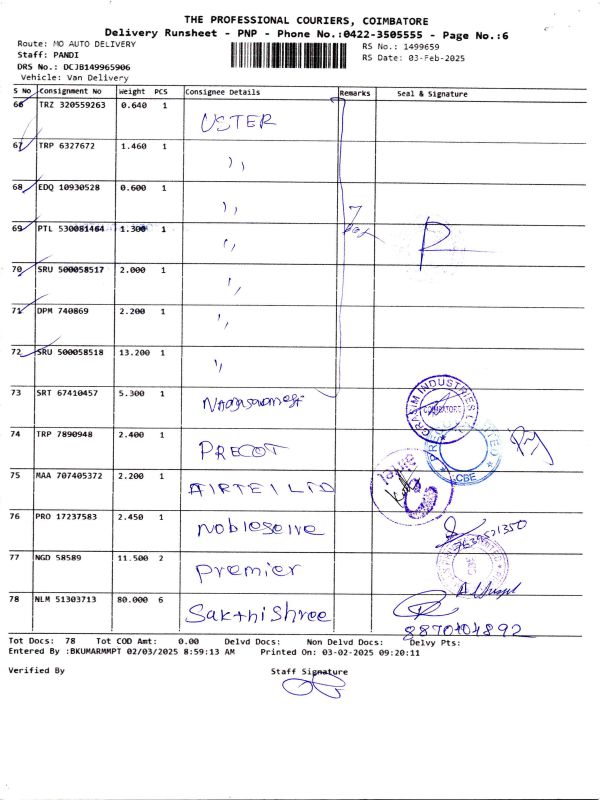 THE PROFESSIONAL COURIERS, COIMBATORE
Delivery Runsheet - PNP - Phone No.:0422-3505555 - Page No.:6
Route: MO AUTO DELIVERY
RS No.: 1499659
Staff: PANDI
RS Date: 03-Feb-2025
DRS No.: DCJB149965906
Vehicle: Van Delivery
S No Consignment No Weight PCS Consignee Details Remarks Seal & Signature
66 TRZ 320559263 0.640 1 USTER
67 TRP 6327672 1.460 1 ,,
68 EDQ 10930528 0.600 1 ,,
69 PTL 530081464 1.300 1 ,,
70 SRU 500058517 2.000 1 ,,
71 DPM 740869 2.200 1 ,,
72 SRU 500058518 13.200 1 ,,
7
73 SRT 67410457 5.300 1
GRASIM INDUSTRIES
COIMBATORE
74 TRP 7890948 2.400 1 PRECOT
CBE
75 MAA 707405372 2.200 1 AIRTEL LTD
airtel
76 PRO 17237583 2.450 1 Nobleserve
77 NGD 58589 11.500 2 Premier
78 NLM 51303713 80.000 6 Sakthi Shree
8870104892
Tot Docs: 78 Tot COD Amt: 0.00 Delvd Docs: Non Delvd Docs: Delvy Pts:
Entered By :BKUMARMMPT 02/03/2025 8:59:13 AM Printed On: 03-02-2025 09:20:11
Verified By Staff Signature